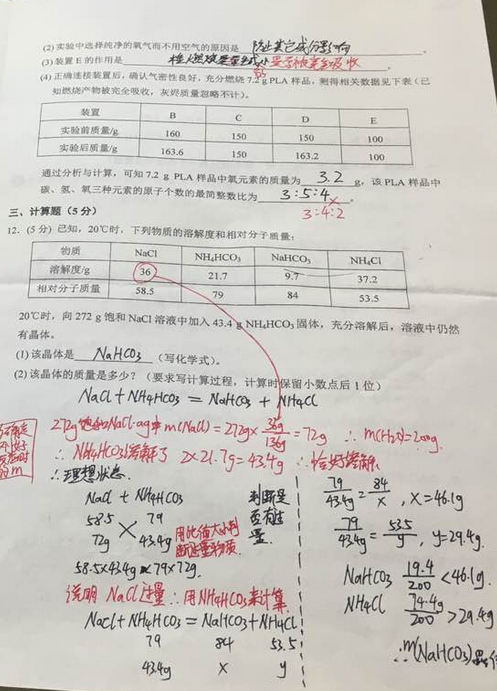 (2) 实验中选择纯净的氧气而不用空气的原因是 防止其它成分影响 。
(3) 装置 E 的作用是 是否被完全吸收
(4) 正确连接装置后，确认气密性良好，充分燃烧 7.2 g PLA 样品，测得相关数据见下表（已
知燃烧产物被完全吸收，灰烬质量忽略不计）。
装置 B C D E
实验前质量/g 160 150 150 100
实验后质量/g 163.6 150 163.2 100
通过分析与计算，可知 7.2 g PLA 样品中氧元素的质量为 3.2 g，该 PLA 样品中
碳、氢、氧三种元素的原子个数的最简整数比为 3:5:4 ×
3:4:2
三、计算题（5 分）
12.（5 分）已知，20℃时，下列物质的溶解度和相对分子质量：
物质 NaCl NH₄HCO₃ NaHCO₃ NH₄Cl
溶解度/g 36 21.7 9.7 37.2
相对分子质量 58.5 79 84 53.5
20℃时，向 272 g 饱和 NaCl 溶液中加入 43.4 g NH₄HCO₃ 固体，充分溶解后，溶液中仍然
有晶体。
(1) 该晶体是 NaHCO₃ （写化学式）。
(2) 该晶体的质量是多少？（要求写计算过程，计算时保留小数点后 1 位）
NaCl + NH₄HCO₃ = NaHCO₃ + NH₄Cl
272g饱和NaCl·aq中 m(NaCl) = 272g × 36g/136g = 72g ∴ m(H₂O)=200g.
∴ NH₄HCO₃溶解了 2×21.7g=43.4g ∴恰好溶解.
∴理想状态.
NaCl + NH₄HCO₃ 判断是
58.5 79 否有过
72g 43.4g 量.
用比值大小判
断过量物质.
58.5×43.4g < 79×72g.
说明 NaCl过量∴用NH₄HCO₃来计算
NaCl+NH₄HCO₃ = NaHCO₃+NH₄Cl
79 84 53.5
43.4g x y
79/43.4g = 84/x , x=46.1g
79/43.4g = 53.5/y , y=29.4g.
NaHCO₃ 19.4/200 < 46.1g.
NH₄Cl 74.4g/200 > 29.4g
∴m(NaHCO₃)